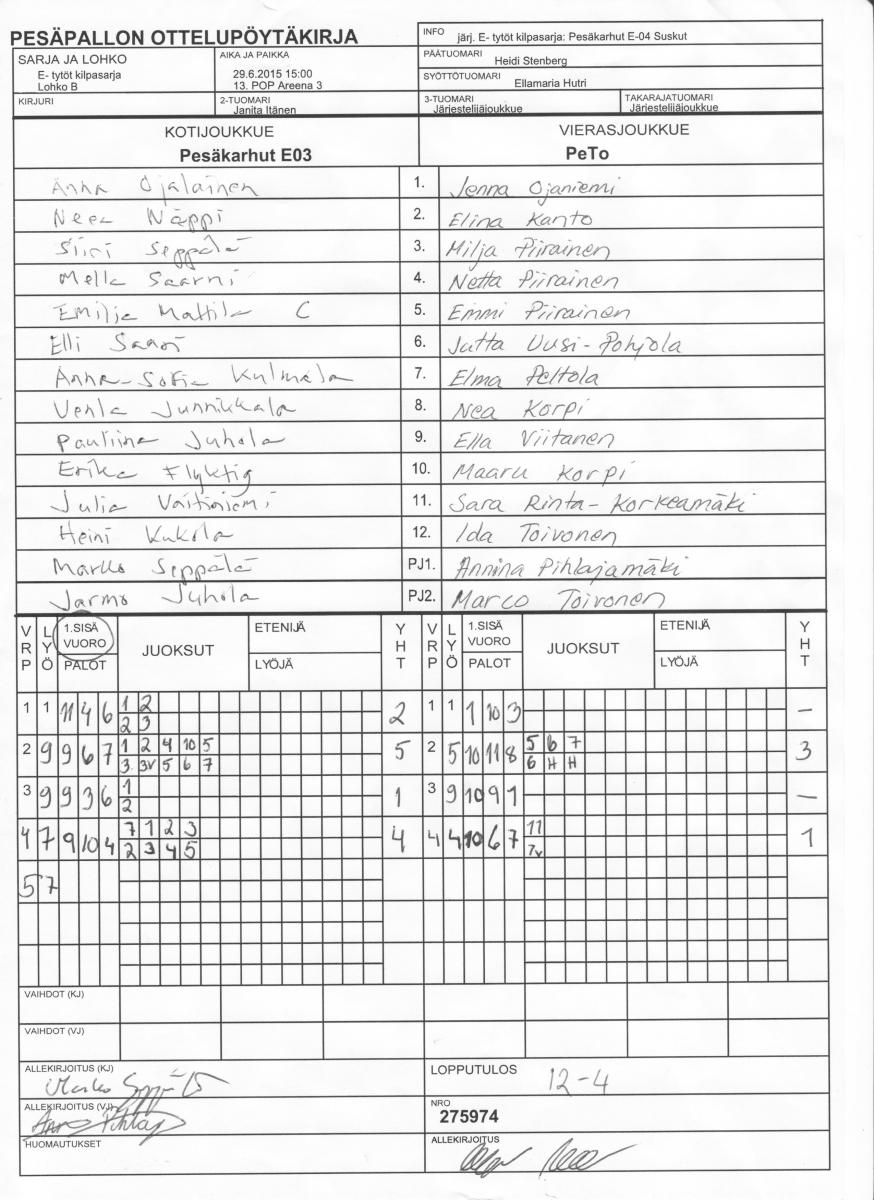 PESÄPALLON OTTELUPÖYTÄKIRJA
INFO järj. E- tytöt kilpasarja: Pesäkarhut E-04 Suskut
SARJA JA LOHKO
E- tytöt kilpasarja
Lohko B
AIKA JA PAIKKA
29.6.2015 15:00
13. POP Areena 3
PÄÄTUOMARI Heidi Stenberg
SYÖTTÖTUOMARI Ellamaria Hutri
KIRJURI
2-TUOMARI Janita Itänen
3-TUOMARI Järjestelijäjoukkue
TAKARAJATUOMARI Järjestelijäjoukkue
KOTIJOUKKUE VIERASJOUKKUE
Pesäkarhut E03 PeTo
Anna Ojalainen 1. Jenna Ojaniemi
Neea Näppi 2. Elina Kanto
Siiri Seppälä 3. Milja Piirainen
Mella Saarni 4. Netta Piirainen
Emilja Mattila C 5. Emmi Piirainen
Elli Saari 6. Jutta Uusi-Pohjola
Anna-Sofia Kulmala 7. Elma Peltola
Venla Junnikkala 8. Nea Korpi
Pauliina Juhola 9. Ella Viitanen
Erika Flyktig 10. Maaru Korpi
Julia Voitiniemi 11. Sara Rinta-Korkeamäki
Heini Kukola 12. Ida Toivonen
Marko Seppälä PJ1. Annina Pihlajamäki
Jarmo Juhola PJ2. Marco Toivonen
VRP LYÖ 1.SISÄ VUORO PALOT JUOKSUT ETENIJÄ LYÖJÄ YHT VRP LYÖ 1.SISÄ VUORO PALOT JUOKSUT ETENIJÄ LYÖJÄ YHT
1 1 11 4 6 1 2 2 1 1 1 10 3 -
2 3
2 9 9 6 7 1 2 4 10 5 5 2 5 10 11 8 5 6 7 3
3 3V 5 6 7 6 H H
3 9 9 3 6 1 1 3 9 10 9 1 -
2
4 7 9 10 4 7 1 2 3 4 4 4 10 6 7 11 1
2 3 4 5 7v
5 7
VAIHDOT (KJ)
VAIHDOT (VJ)
ALLEKIRJOITUS (KJ)
LOPPUTULOS 12-4
ALLEKIRJOITUS (VJ)
NRO
275974
HUOMAUTUKSET
ALLEKIRJOITUS